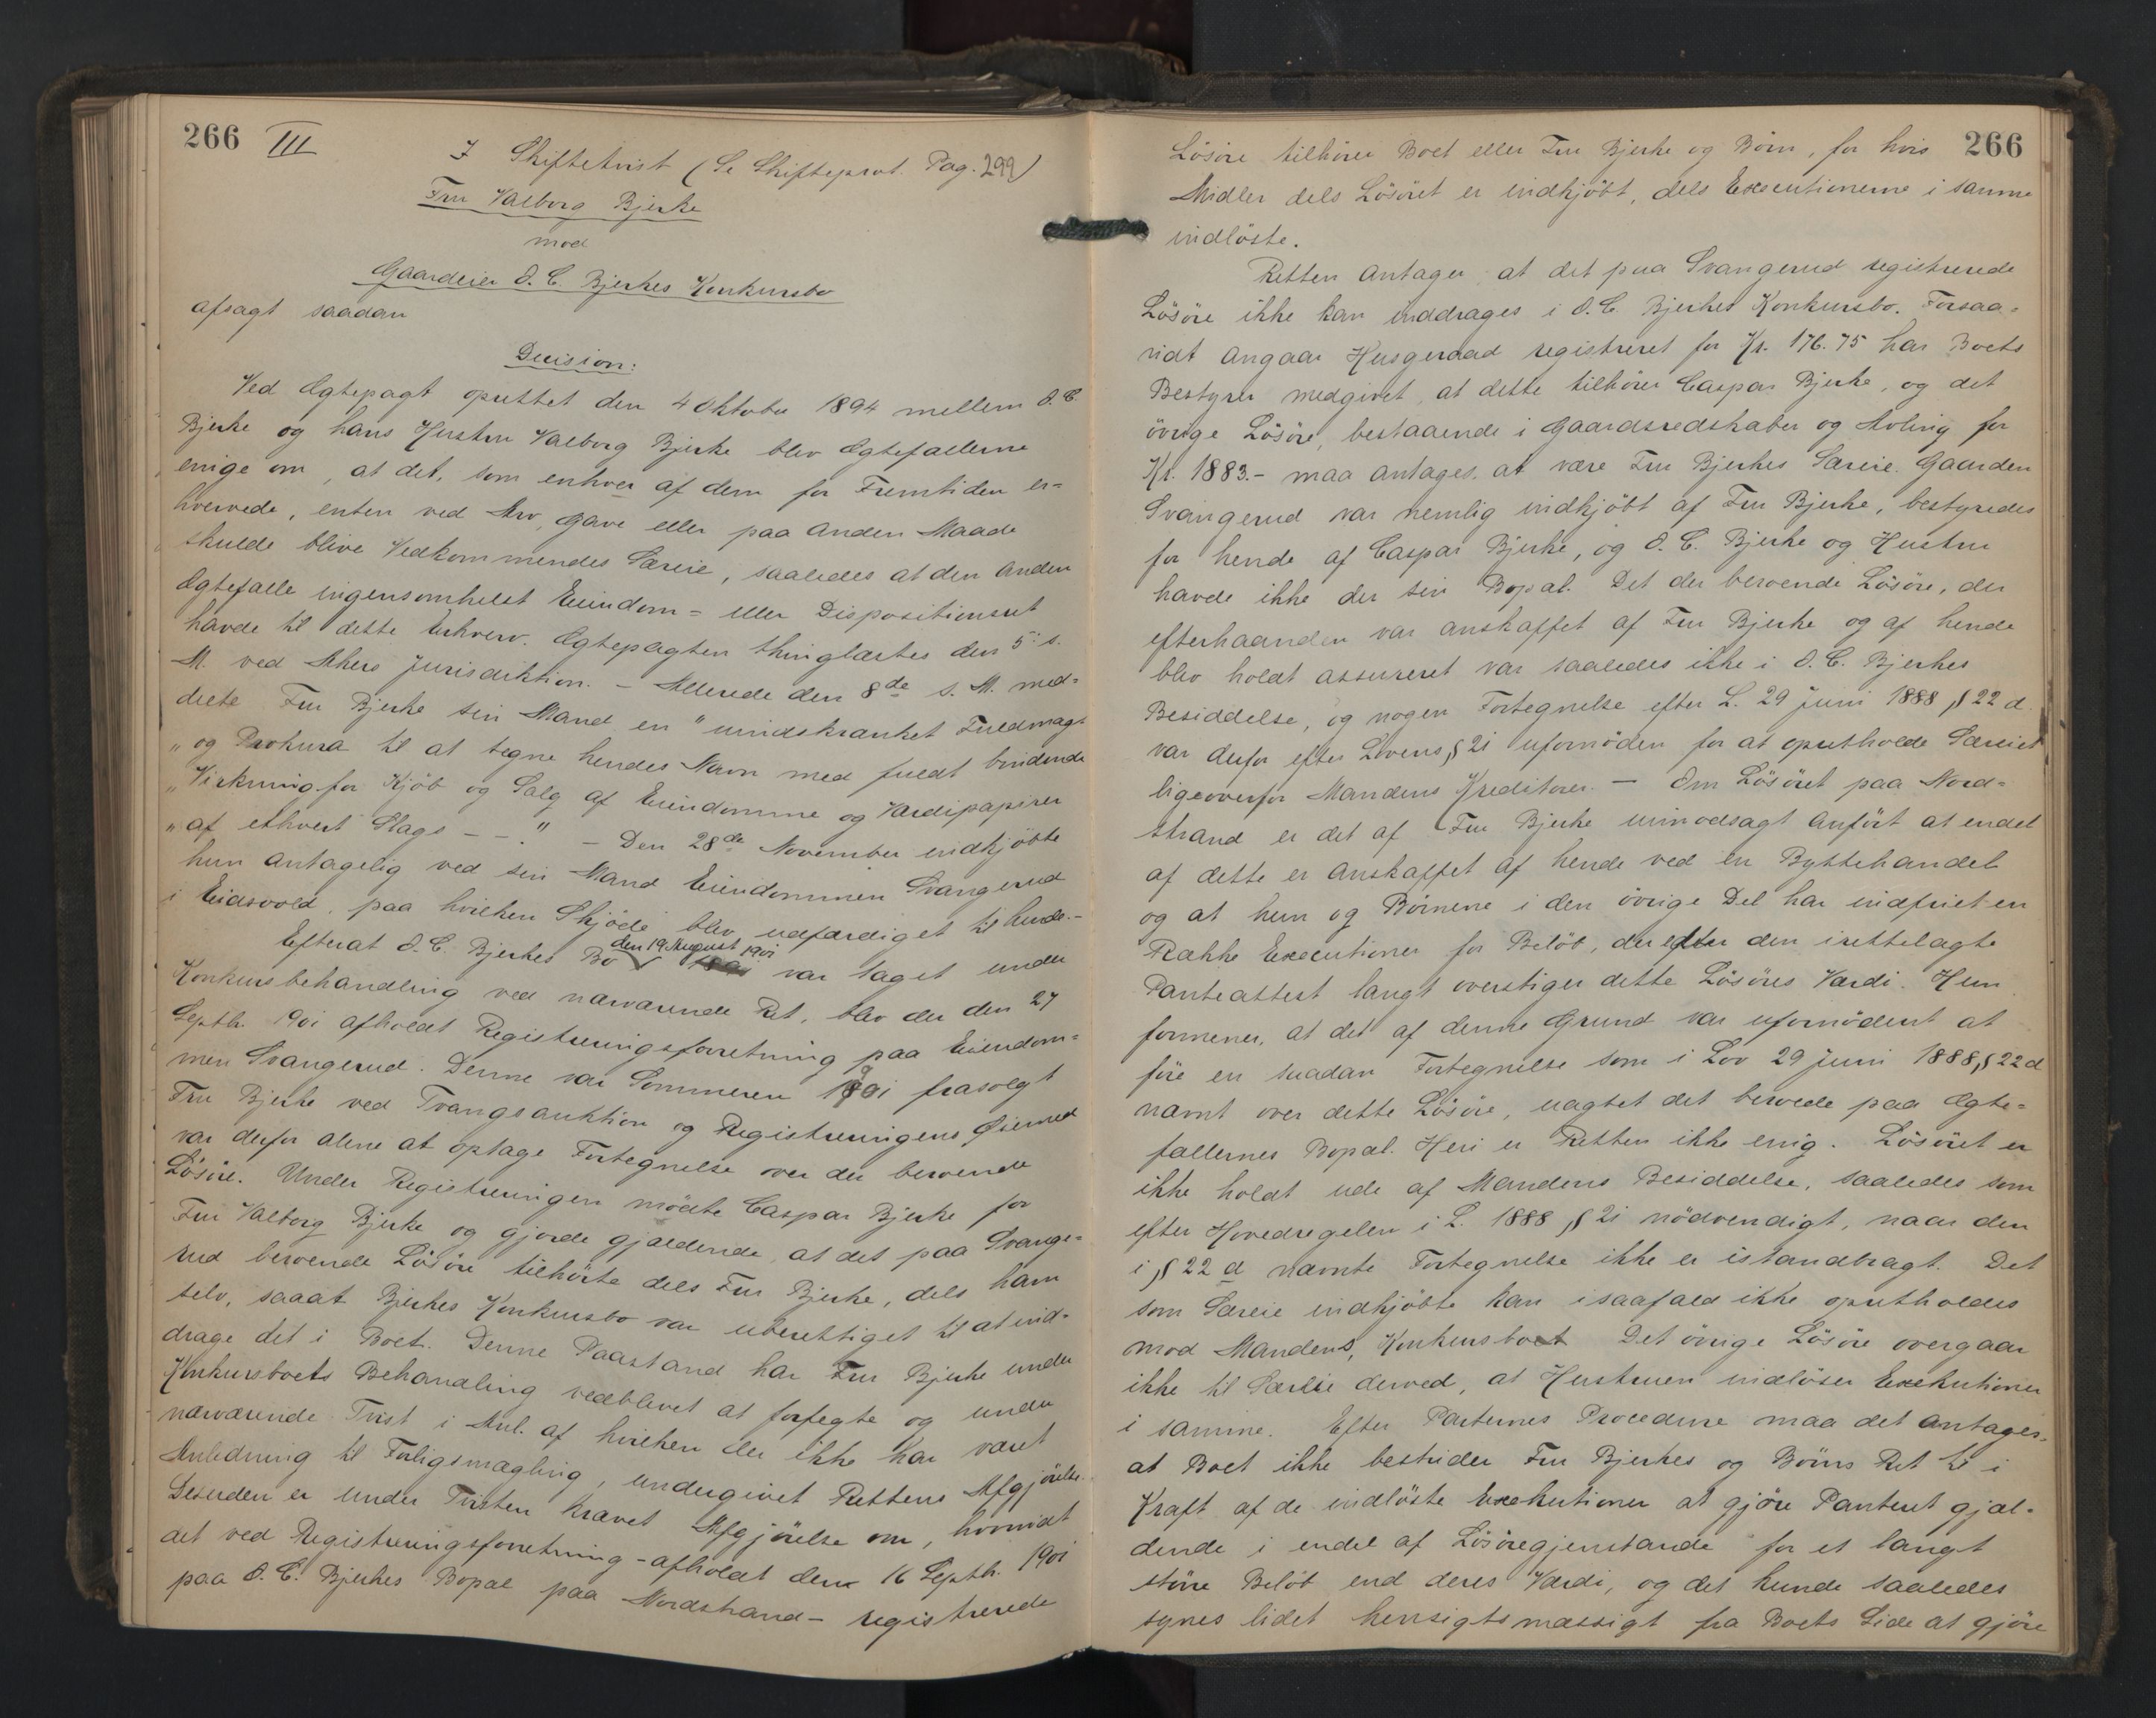 266 III
I Skiftetvist (Se Skifteprot. Pag. 299)
Fru Valborg Bjerke
mod
Gaardeier O. C. Bjerkes Konkursbo
afsagt saadan
Decision:
Ved Ægtepagt oprettet den 4 Oktober 1894 mellem O. C.
Bjerke og hans Hustru Valborg Bjerke blev Ægtefællerne
enige om, at det, som enhver af dem for Fremtiden er=
hvervede, enten ved Arv, Gave eller paa anden Maade
skulde blive Vedkommendes Særeie, saaledes at den anden
Ægtefælle ingensomhelst Eiendom= eller Dispositionsret
havde til dette Erhverv. Ægtepagten thinglæstes den 5: s.
M. ved Akers Jurisdiktion. – Allerede den 8de s. M. med=
delte Fru Bjerke sin Mand en "uindskrænket Fuldmagt
"og Prokura til at tegne hendes Navn med fuldt bindende
"Virkning for Kjöb og Salg af Eiendomme og Værdipapirer
"af ethvert Slags – – " – Den 28de November indkjöbte
hun antagelig ved sin Mand Eiendommen Svangerud
i Eidsvold, paa hvilken Skjöde blev udfærdiget til hende. –
Efterat O. C. Bjerkes Bo den 19 August 1901 var taget under
Konkursbehandling ved nærværende Ret, blev der den 27
Septbr. 1901 afholdt Registreringsforretning paa Eiendom=
men Svangerud. Denne var Sommeren 1901 frasolgt
Fru Bjerke ved Tvangsauktion og Registreringens Öiemed
var derfor alene at optage Fortegnelse over der beroende
Lösöre. Under Registreringen mödte Caspar Bjerke for
Fru Valborg Bjerke og gjorde gjældende, at det paa Svange=
rud beroende Lösöre tilhörte dels Fru Bjerke, dels ham
selv, saaat Bjerkes Konkursbo var uberettiget til at ind=
drage det i Boet. Denne Paastand har Fru Bjerke under
Konkursboets Behandling vedblevet at forfegte og under
nærværende Tvist i Anl. af hvilken der ikke har været
Anledning til Forligsmægling, undergivet Rettens Afgjörelse.
Desuden er under Tvisten krævet Afgjörelse om, hvorvidt
det ved Registreringsforretning – afholdt den 16 Septbr. 1901
paa O. C. Bjerkes Bopæl paa Nordstrand – registrerede
266
Lösöre tilhörer Boet eller Fru Bjerke og Börn, for hvis
Midler dels Lösöret er indkjöbt, dels Executionerne i samme
indlöste.
Retten antager, at det paa Svangerud registrerede
Lösöre ikke kan inddrages i O. C. Bjerkes Konkursbo. Forsaa=
vidt angaar Husgeraad registreret for Kr. 176.75 har Boets
Bestyrer medgivet, at dette tilhörer Caspar Bjerke, og det
övrige Lösöre, bestaaende i Gaardsredskaber og Avling for
Kr. 1883.– maa antages at være Fru Bjerkes Særeie. Gaarden
Svangerud var nemlig indkjöbt af Fru Bjerke, bestyredes
for hende af Caspar Bjerke, og O. C. Bjerke og Hustru
havde ikke der sin Bopæl. Det der beroende Lösöre, der
efterhaanden var anskaffet af Fru Bjerke og af hende
blev holdt assureret var saaledes ikke i O. C. Bjerkes
Besiddelse, og nogen Fortegnelse efter L. 29 Juni 1888 § 22 d.
var derfor efter Lovens § 21 ufornöden for at opretholde Særeiet
ligeoverfor Mandens Kreditorer. – Om Lösöret paa Nord=
strand er det af Fru Bjerke uimodsagt anfört at endel
af dette er anskaffet af hende ved en Byttehandel
og at hun og Börnene i den övrige Del har indfriet en
Række Executioner for Belöb, der efter den irettelagte
Panteattest langt overstiger dette Lösöres Værdi. Hun
formener, at det af denne Grund var ufornödent at
före en saadan Fortegnelse som i Lov 29 Juni 1888, § 22 d
nævnt over dette Lösöre, uagtet det beroede paa Ægte=
fællernes Bopæl. Heri er Retten ikke enig. Lösöret er
ikke holdt ude af Mandens Besiddelse, saaledes som
efter Hovedregelen i L. 1888 § 21 nödvendigt, naar den
i § 22 d nævnte Fortegnelse ikke er istandbragt. Det
som Særeie indkjöbte kan isaafald ikke opretholdes
mod Mandens Konkursboet Det övrige Lösöre overgaar
ikke til Særeie derved, at Hustruen indlöser Exekutioner
i samme. Efter Parternes Procedure maa det antages,
at Boet ikke bestrider Fru Bjerkes og Börns Ret til i
Kraft af de indlöste Exekutioner at gjöre Panteret gjæl=
dende i endel af Lösöregjenstande for et langt
större Belöb end deres Værdi, og det kunde saaledes
synes lidet hensigtsmæssigt fra Boets Side at gjöre